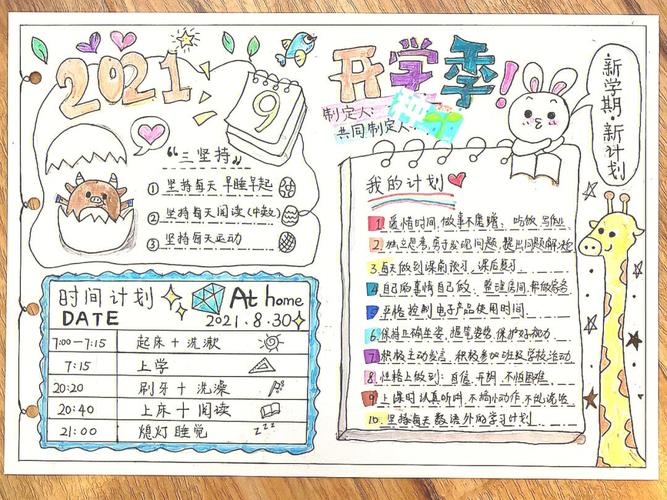 2021
9
"三坚持"
① 坚持每天 早睡早起
② 坚持每天阅读(中英)
③ 坚持每天运动
时间计划
DATE
At home
2021.8.30
7:00—7:15 起床+洗漱
7:15 上学
20:20 刷牙+洗澡
20:40 上床+阅读
21:00 熄灯睡觉 zzz
开学季!
制定人:
共同制定人:
新学期·新计划
我的计划
1 爱惜时间,做事不磨蹭,吃饭 写作业
2 独立思考,善于发现问题,提出问题解决
3 每天做到课前预习,课后复习
4 自己的事情自己做,整理房间,帮做家务
5 严格控制电子产品使用时间
6 保持正确坐姿,握笔姿势,保护好视力
7 积极主动发言,积极参加班级学校活动
8 性格上做到:自信,开朗,不怕困难
9 上课时认真听讲,不搞小动作,不说说话
10. 坚持每天数语外的学习计划